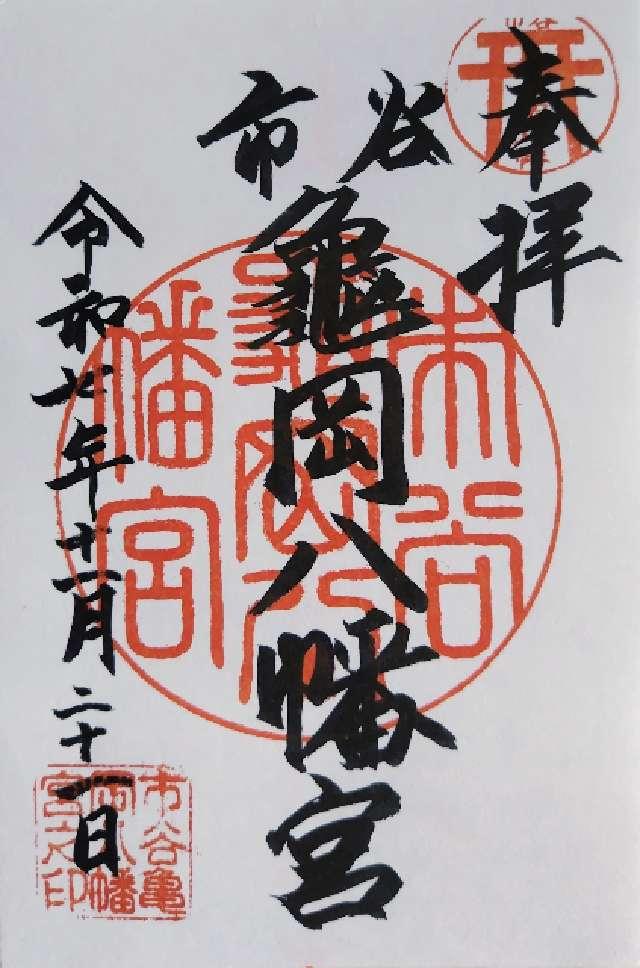 奉拝
市谷
亀岡八幡宮
令和七年十一月二十一日
市谷
亀岡八
幡宮
市谷亀
岡八幡
宮之印